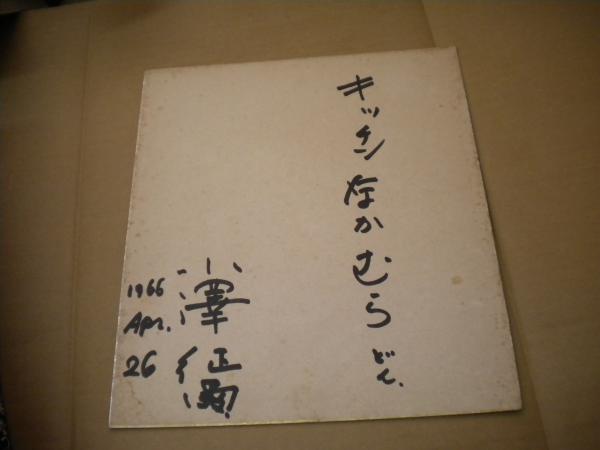 キッチンなかむらどん.
小澤征爾
1966
Apr.
26